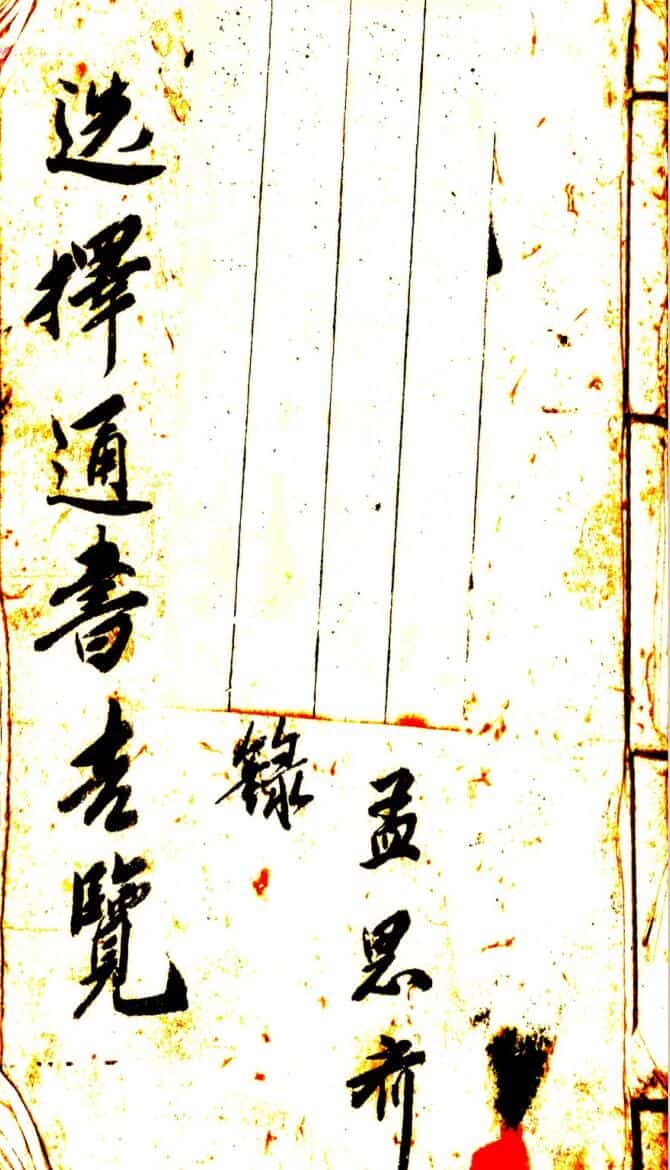 孟思齐
錄
选擇通書吉覽